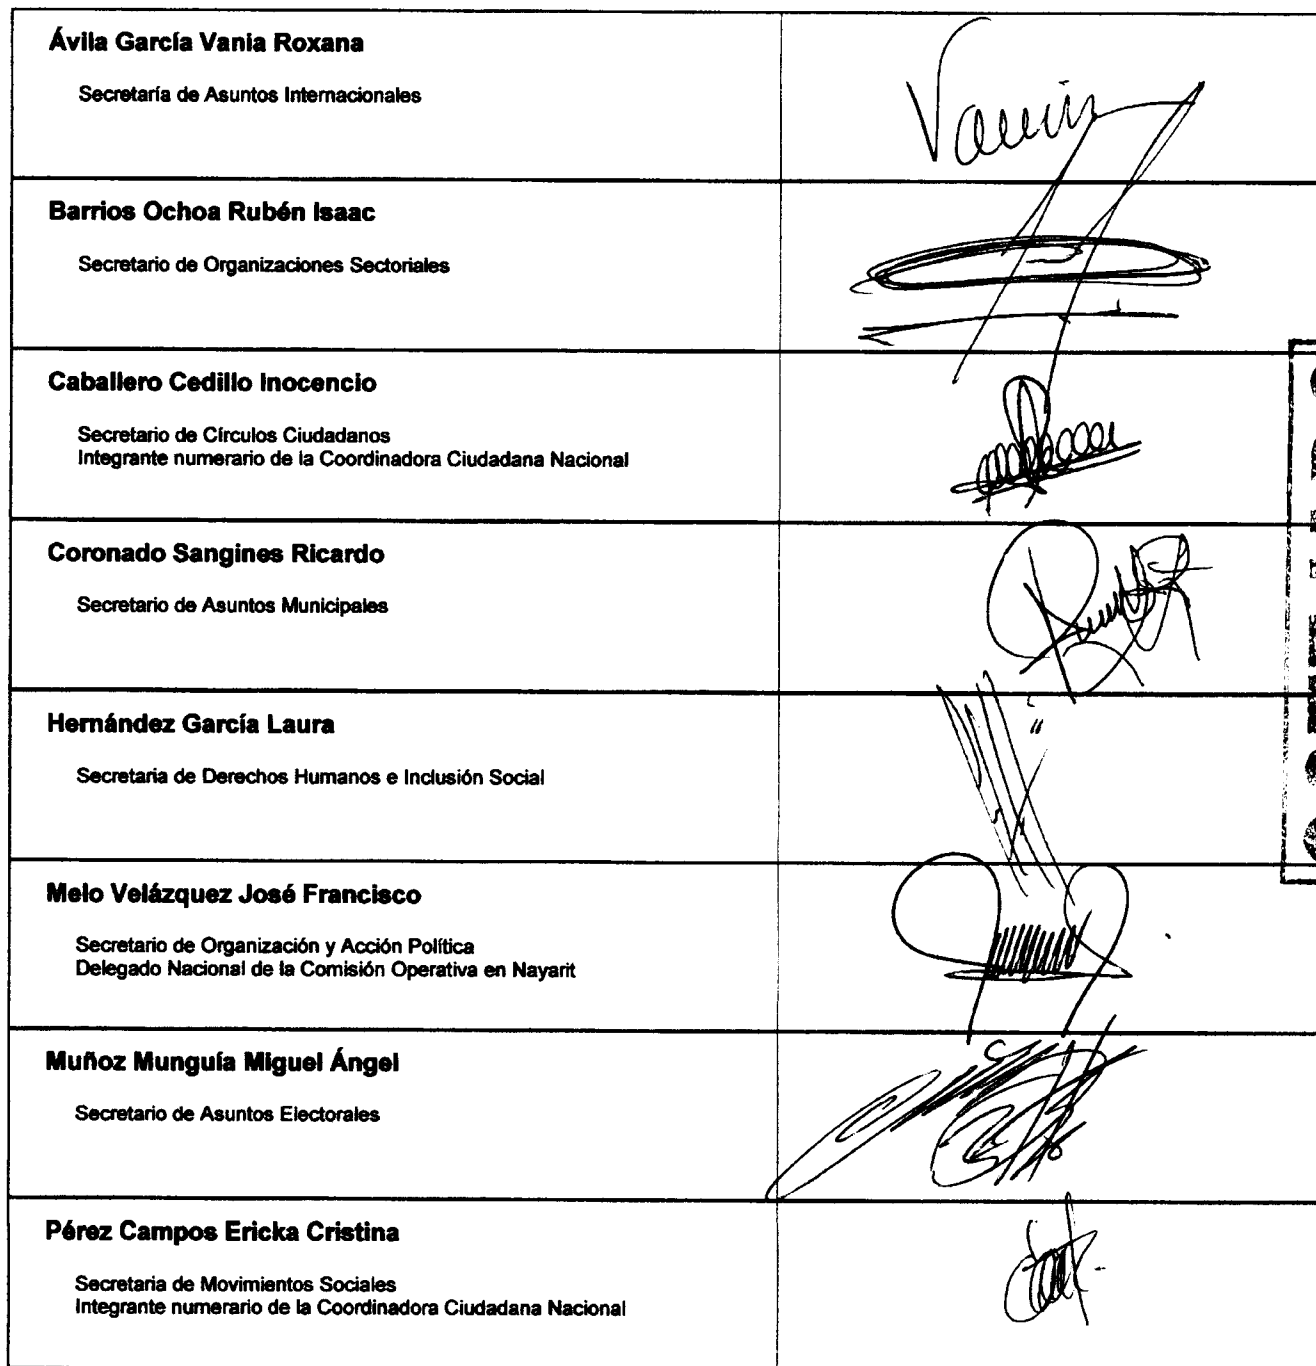 Ávila García Vania Roxana
Secretaría de Asuntos Internacionales
Barrios Ochoa Rubén Isaac
Secretario de Organizaciones Sectoriales
Caballero Cedillo Inocencio
Secretario de Círculos Ciudadanos
Integrante numerario de la Coordinadora Ciudadana Nacional
Coronado Sangines Ricardo
Secretario de Asuntos Municipales
Hernández García Laura
Secretaria de Derechos Humanos e Inclusión Social
Melo Velázquez José Francisco
Secretario de Organización y Acción Política
Delegado Nacional de la Comisión Operativa en Nayarit
Muñoz Munguía Miguel Ángel
Secretario de Asuntos Electorales
Pérez Campos Ericka Cristina
Secretaria de Movimientos Sociales
Integrante numerario de la Coordinadora Ciudadana Nacional